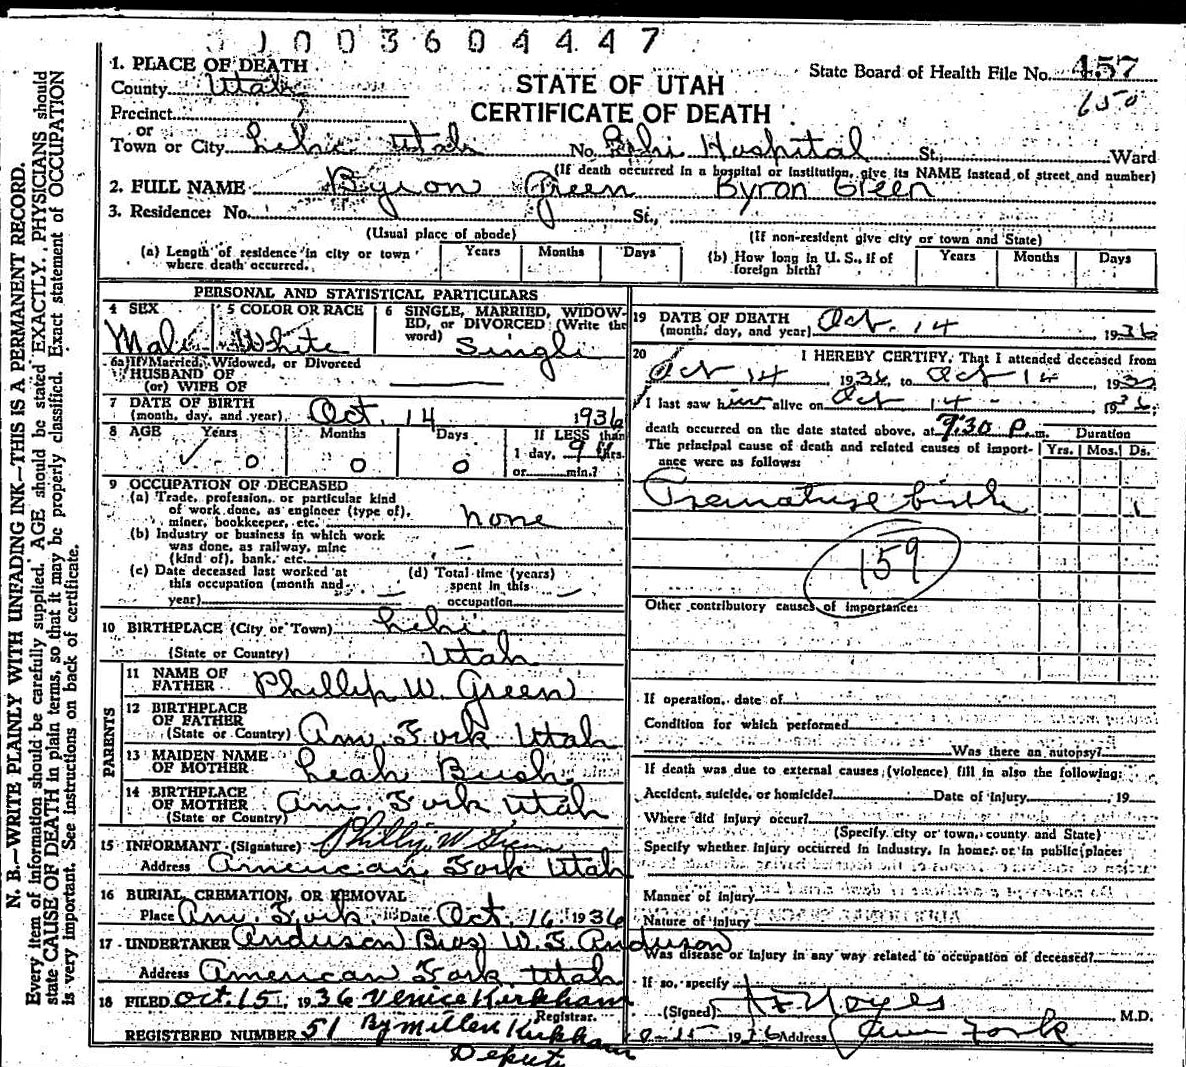 1003604447
1. PLACE OF DEATH
County Utah
Precinct
or
Town or City Lehi Utah No. Lehi Hospital St., Ward
STATE OF UTAH
CERTIFICATE OF DEATH
State Board of Health File No. 457
650
(If death occurred in a hospital or institution, give its NAME instead of street and number)
2. FULL NAME Byron Green Byron Green
3. Residence: No. St.,
(Usual place of abode) (If non-resident give city or town and State)
(a) Length of residence in city or town where death occurred. Years Months Days
(b) How long in U. S., if of foreign birth? Years Months Days
PERSONAL AND STATISTICAL PARTICULARS
4 SEX 5 COLOR OR RACE 6 SINGLE, MARRIED, WIDOW-
ED, or DIVORCED (Write the
word)
Male White Single
6a If Married, Widowed, or Divorced
HUSBAND OF
(or) WIFE OF
7 DATE OF BIRTH
(month, day, and year) Oct. 14 1936
8 AGE Years Months Days If LESS than
0 0 0 1 day, 9 hrs.
or min.?
9 OCCUPATION OF DECEASED
(a) Trade, profession, or particular kind
of work done, as engineer (type of),
miner, bookkeeper, etc. none
(b) Industry or business in which work
was done, as railway, mine
(kind of), bank, etc.
(c) Date deceased last worked at
this occupation (month and
year)
(d) Total time (years)
spent in this
occupation
10 BIRTHPLACE (City or Town) Lehi
(State or Country) Utah
PARENTS
11 NAME OF
FATHER Phillip W. Green
12 BIRTHPLACE
OF FATHER
(State or Country) Am. Fork Utah
13 MAIDEN NAME
OF MOTHER Leah Bush
14 BIRTHPLACE
OF MOTHER
(State or Country) Am. Fork Utah
15 INFORMANT (Signature) Phillip W Green
Address American Fork Utah
16 BURIAL, CREMATION, OR REMOVAL
Place Am. Fork Date Oct. 16 1936
17 UNDERTAKER Anderson Bros W. F. Anderson
Address American Fork Utah
18 FILED Oct. 15, 1936 Venice Kirkham
Registrar.
REGISTERED NUMBER 51 By Millen Kirkham
Deputy
19 DATE OF DEATH
(month, day, and year) Oct. 14 1936
20 I HEREBY CERTIFY, That I attended deceased from
Oct 14, 1936, to Oct 14, 1936
I last saw him alive on Oct 14 1936;
death occurred on the date stated above, at 9:30 P. m. Duration
The principal cause of death and related causes of import-
ance were as follows: Yrs. Mos. Ds.
Premature birth 1
159
Other contributory causes of importance:
If operation, date of
Condition for which performed
Was there an autopsy?
If death was due to external causes (violence) fill in also the following:
Accident, suicide, or homicide? Date of injury , 19
Where did injury occur?
(Specify city or town, county and State)
Specify whether injury occurred in industry, in home, or in public place:
Manner of injury
Nature of injury
Was disease or injury in any way related to occupation of deceased?
If so, specify
(Signed) Noyes M.D.
10-15 1936 Address Am Fork
N. B.—WRITE PLAINLY WITH UNFADING INK—THIS IS A PERMANENT RECORD.
Every item of information should be carefully supplied. AGE should be stated EXACTLY. PHYSICIANS should
state CAUSE OF DEATH in plain terms, so that it may be properly classified. Exact statement of OCCUPATION
is very important. See instructions on back of certificate.